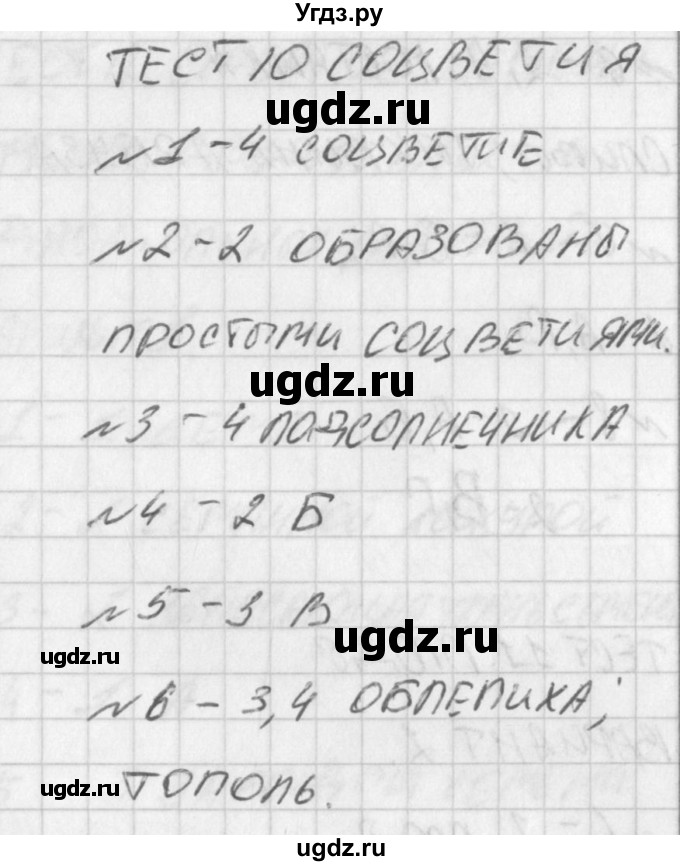 Угдз.ру
ТЕСТ 10 СОЦВЕТИЯ
ugdz.ru
№1 - 4 СОЦВЕТИЕ
№2 - 2 ОБРАЗОВАНЫ
ПРОСТЫМИ СОЦВЕТИЯМИ.
ugdz.ru
№3 - 4 ПОДСОЛНЕЧНИКА
№4 - 2 Б
№5 - 3 В
ugdz.ru
ugdz.ru
№6 - 3,4 ОБЛЕПИХА;
ugdz.ru
ТОПОЛЬ.
ugdz.ru